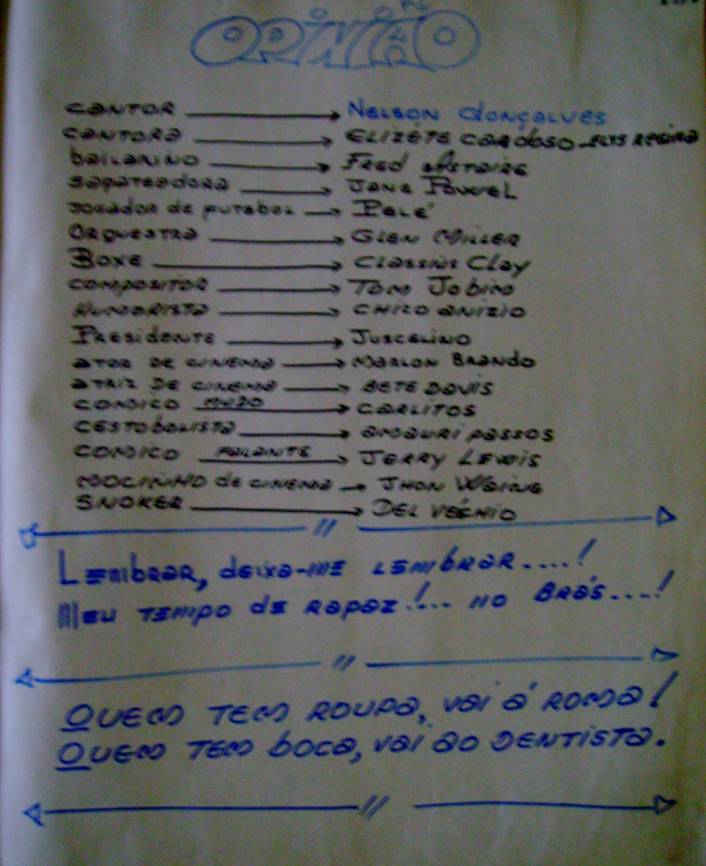 OPINIÃO
CANTOR → NELSON GONÇALVES
CANTORA → ELIZETE CARDOSO - ELIS REGINA
BAILARINO → FRED ASTAIRE
SAPATEADORA → JANE POWEL
JOGADOR DE FUTEBOL → PELÉ
ORQUESTRA → GLEN MILLER
BOXE → CLASSIUS CLAY
COMPOSITOR → TOM JOBIM
HUMORISTA → CHICO ANIZIO
PRESIDENTE → JUSCELINO
ATOR DE CINEMA → MARLON BRANDO
ATRIZ DE CINEMA → BETE DAVIS
COMICO MUDO → CARLITOS
CESTOBOLISTA → AMAURI PASSOS
COMICO FALANTE → JERRY LEWIS
MOCINHO DE CINEMA → JHON WEINE
SNOKER → DEL VÉCHIO
LEMBRAR, DEIXA-ME LEMBRAR....!
MEU TEMPO DE RAPAZ!... NO BRÁS....!
QUEM TEM ROUPA, VAI Á ROMA!
QUEM TEM BOCA, VAI AO DENTISTA.